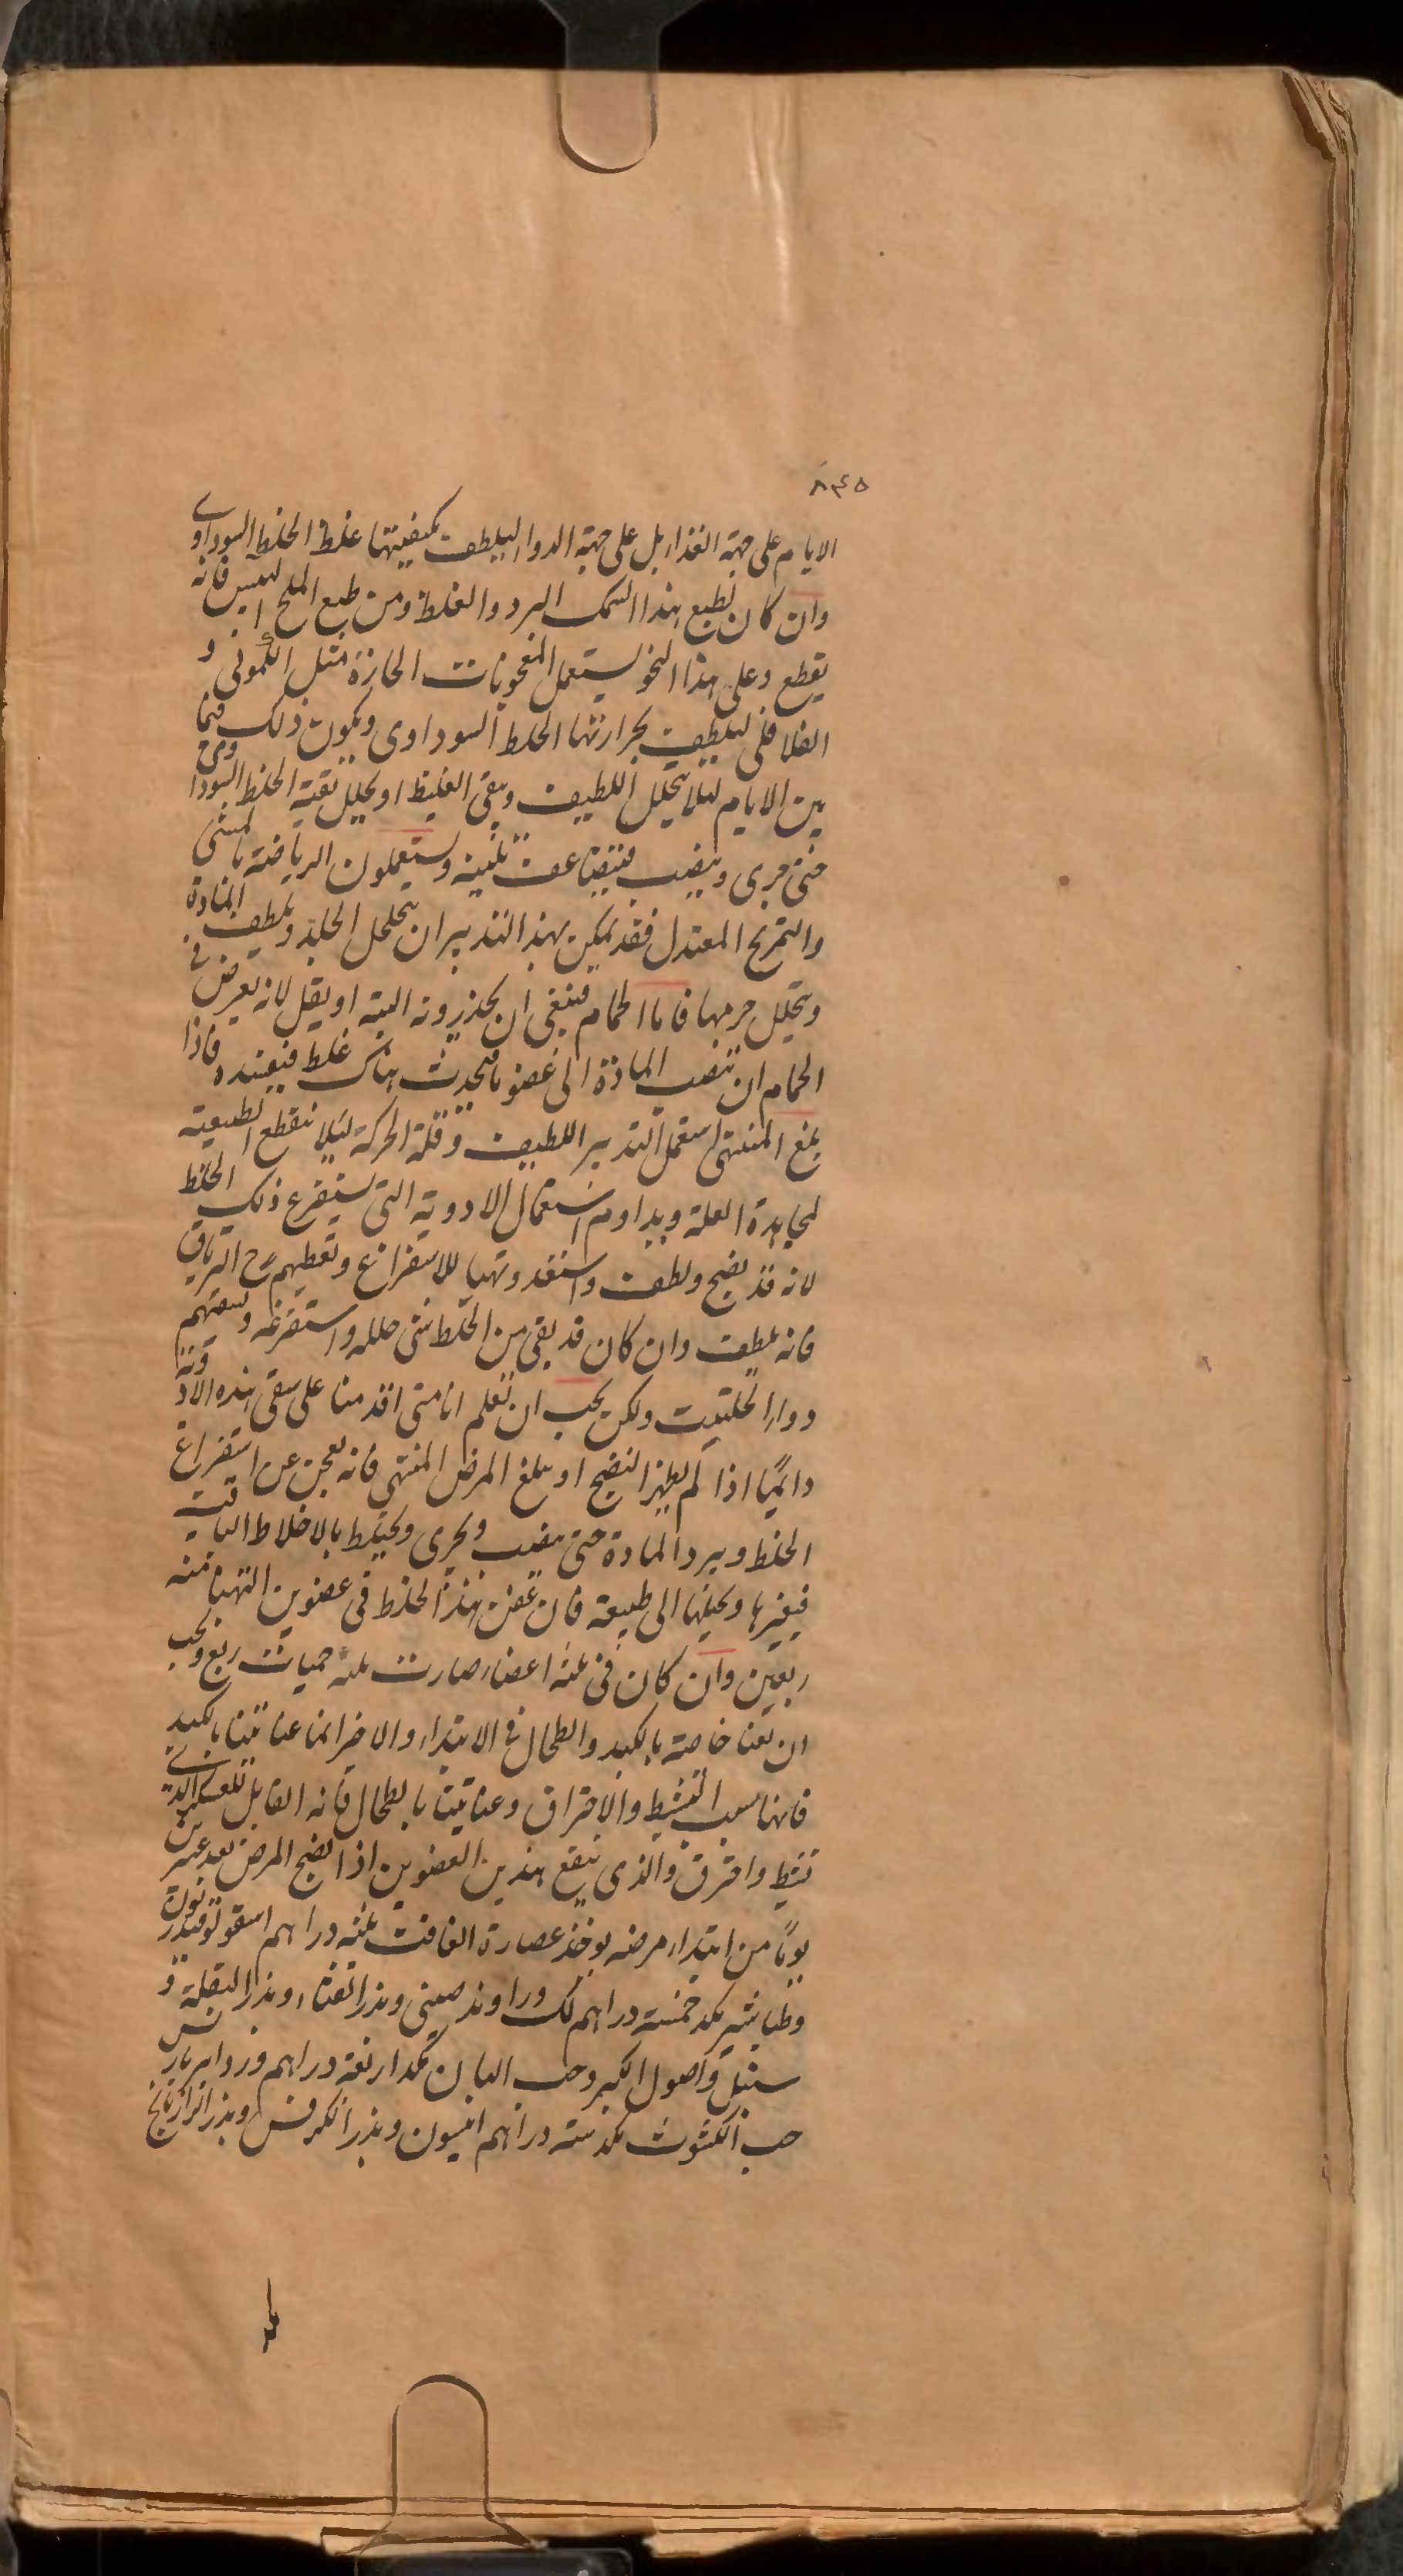 ٨٤٥
الايام على جهة الغذاء بل على جهة الدواء ليلطف بكيفيتها غلظ الخلط السوداوى
وان كان لطبع هذا السمك البرد والغلظ ومن طبع الملح اليبس فانه
يقطع وعلى هذا النحو يستعمل المعجونات الحارة مثل الكمونى و
الفلافلى ليلطف بحرارتها الخلط السوداوى ويكون ذلك فيما
بين الايام ليلا يتحلل اللطيف ويبقى الغليظ او يحلل بقية الخلط السوداوى
حتى جرى وينصب فيتضاعف بليته ويستعملون الرياضة بالمشى
والتمريخ المعتدل فقد يمكن بهذا التدبير ان يتخلخل الجلد ويلطف المادة
ويتحلل جرمها فاما الحمام فينبغى ان يحذرونه البتة او يقل لانه يعرض فى
الحمام ان تنصب المادة الى عضو ما فيحدث هناك غلط فيعتده فاذا
بلغ المنتهى استعمل التدبير اللطيف وقلة الحركة ليلا تنقطع الطبيعة
لمجاهدة العلة ويداوم استعمال الادوية التى يستفرغ ذلك الخلط
لانه قد نضج ولطف واستعد وتهيا للاستفراغ وتعطيهم ح الترياق
فانه يلطف وان كان قد بقى من الخلط شى حلله واستفرغه ونسقيهم
دواء الحلتيت ولكن يجب ان تعلم انا متى اقدمنا على سقى هذه الادوية
دائميا اذا لم يظهر النضج او يبلغ المرض المنتهى فانه يعجز عن استفراغ
الخلط ويبرد المادة حتى ينصب ويجرى ويختلط بالاخلاط الباقية
فيغيرها ويحيلها الى طبيعة فان عفن هذا الخلط فى عضوين التهبا منه
ربعين وان كان فى ثلثه اعضاء صارت ثلثه حميات ربع ويجب
ان تعنا خاصة بالكبد والطحال فى الابتداء والاخر انما عنايتنا بالكبد
فانها سبب التشيط والاحتراق وعنايتنا بالطحال فانه القابل للعكر الذى
تشيط واحترق والذى ينفع هذين العضوين اذا نضج المرض بعد عشرين
يوماً من ابتداء مرضه يوخذ عصارة الغافت ثلثه دراهم اسقولوقندريون
وطباشير بكد خمسة دراهم لك وراوند صينى وبذر القثاء وبذر البقلة و
سنبل واصول الكبر وحب البان بكد اربعة دراهم ورد امبرباريس
حب الكشوث بكد سته دراهم انيسون وبذر الكرفس وبذر الرازيانج